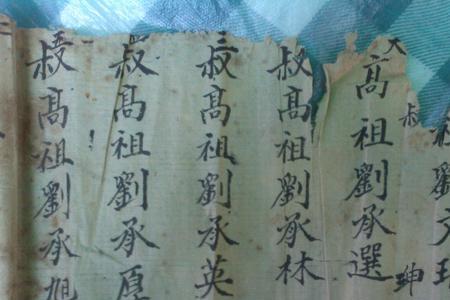 祖劉文
叔 坤
高祖劉承選
叔高祖劉承林
三叔高祖劉承英
叔高祖劉承厚
叔高祖劉承旭